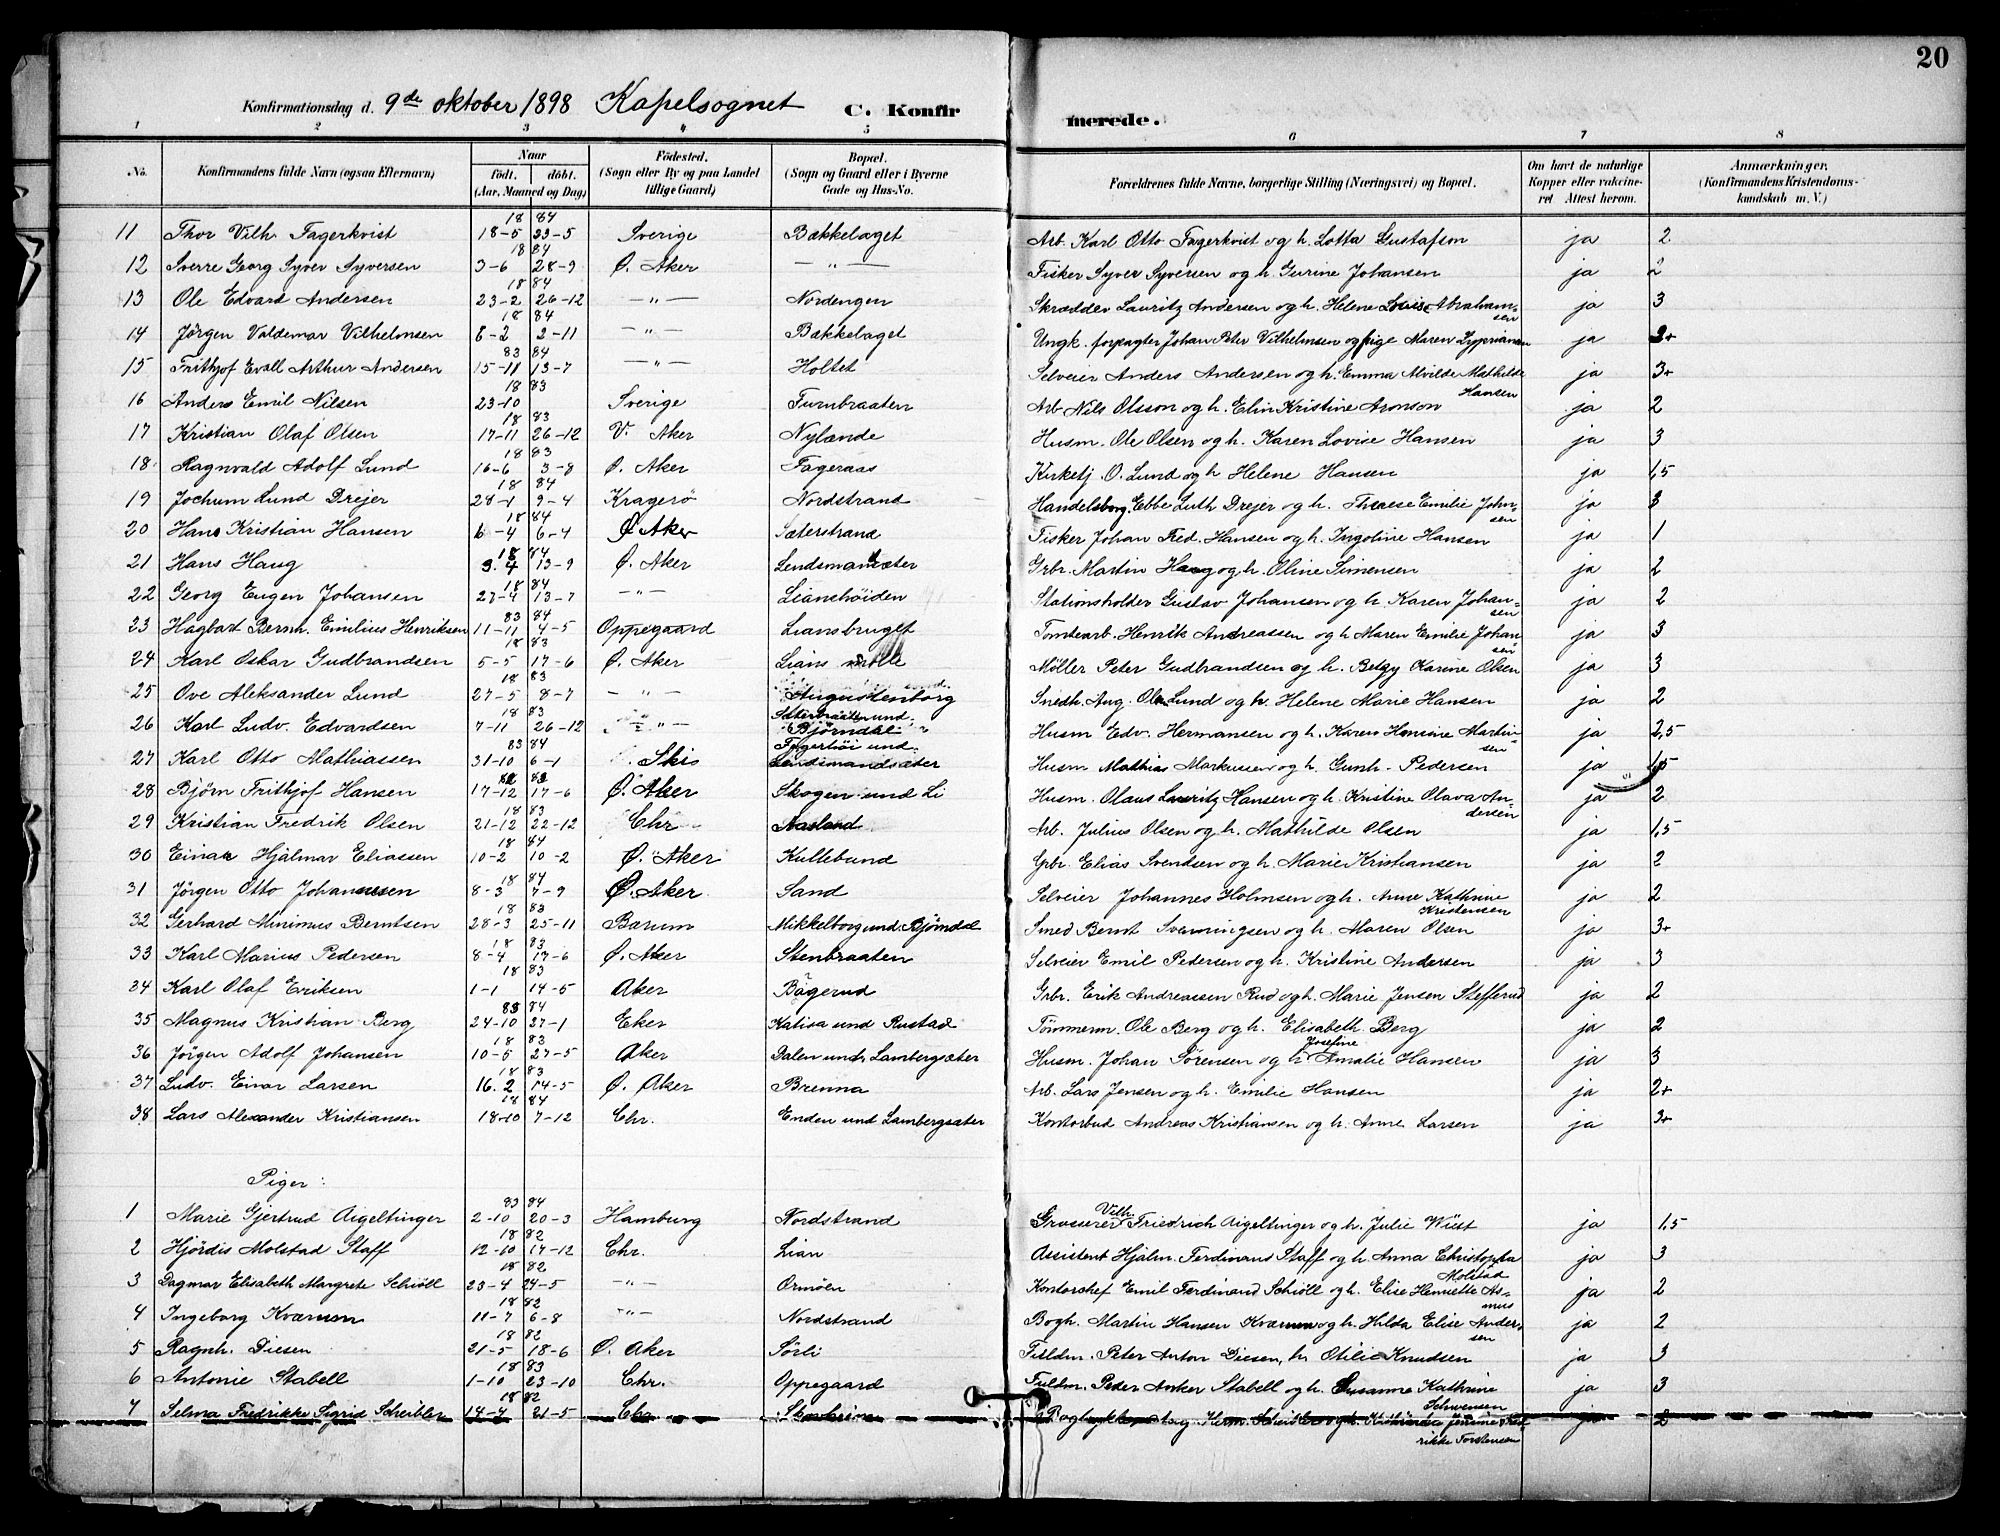 20
Konfirmationsdag d. 9de oktober 1898 Kapelsognet C. Konfirmerede.
1 2 3 4 5 6 7 8
No. Konfirmandens fulde Navn (ogsaa Efternavn) Naar født. døbt. (Aar, Maaned og Dag) Fødested. (Sogn eller By og paa Landet tillige Gaard) Bopæl. (Sogn og Gaard eller i Byerne Gade og Hus-No. Forældrenes fulde Navne, borgerlige Stilling (Næringsvei) og Bopæl. Om havt de naturlige Kopper eller vaccineret. Attest herom. Anmærkninger, (Konfirmandens Kristendomskundskab m. V.)
11 Thor Vilh. Fagerkvist 18 84 18-5 23-5 Sverige Bækkelaget Arb. Karl Otto Fagerkvist og h. Lotta Gustafson ja 2
12 Sverre Georg Syver Syversen 18 84 3-6 28-9 Ø. Aker — " — Fisker Syver Syversen og h. Gurine Johansen ja 2
13 Ole Edvard Andersen 18 84 23-2 26-12 — " — Nordengen Skrædder Lauritz Andersen og h. Helene Louise Abrahamsen ja 3
14 Jörgen Valdemar Vilhelmsen 18 84 8-2 2-11 — " — Bækkelaget Ungk. forpagter Johan Peter Vilhelmsen og pige Maren Zypriansen ja 3+
15 Frithjof Evall Arthur Andersen 83 84 15-11 13-7 — " — Holtet Selveier Anders Andersen og h. Emma Alvilde Mathilde Hansen ja 3+
16 Anders Emil Nilsen 18 83 23-10 Sverige Furubraaten Arb Nils Olsson og h. Elin Kristine Aronson ja 2
17 Kristian Olaf Olsen 18 83 17-11 26-12 V. Aker Nylænde Husm. Ole Olsen og h. Karen Lovise Hansen ja 3
18. Ragnvald Adolf Lund 18 83 16-6 3-8 Ø. Aker Fageraas Kirketj. O. Lund og h Helene Hansen ja 1,5
19 Jochum Lund Drejer 18 84 28-1 9-4 Kragerø Nordstrand Handelsborg. Ebbe Luth Drejer og h. Therese Emilie Johnsen ja 3
20 Hans Kristian Hansen 18 84 6-4 6-4 Ø Aker Sæterstrand Fisker Johan Fred. Hansen og h. Ingoline Hansen ja 1
21 Hans Haug 18 84 3.4 13-9 Ø. Aker Lendsmandsæter Grbr. Martin Haug og h. Oline Simensen ja 2
22 Georg Eugen Johansen 18 84 27-4 13-7 — " — Lianshöiden Stationsholder Gustav Johansen og h. Karen Johansen ja 2
23 Hagbart Bernh. Emilius Henriksen 83 84 11-11 4-5 Oppegaard Liansbruget Tomtearb. Henrik Andreassen og h Maren Emilie Johansen ja 3
24 Karl Oskar Gudbrandsen 18 83 5-5 17-6 Ø. Aker Lians mölle Möller Peter Gudbrandsen og h. Betzy Karine Olsen ja 3
25 Ove Aleksander Lund 18 83 27-5 8-7 — " — Augustenborg Snedk. Aug. Ole Lund og h. Helene Marie Hansen ja 2
26 Karl Ludv. Edvardsen 18 83 7-11 26-12 — " — Sæterbraaten und. Björndal Husm Edv. Hermansen og h. Karen Hansine Martinsen ja 2,5
27 Karl Otto Mathiassen 83 84 31-10 6-1 Skis Fagerhöi und. Lendsmandsæter Husm Mathias Markussen og h. Gunh. Pedersen ja 1,5
28 Björn Frithjof Hansen 17-12 17-6 Ø. Aker Skogen und Li Husm. Olaus Lauritz Hansen og h. Kristine Olava Andersen ja 2
29 Kristian Fredrik Olsen 18 83 21-12 22-12 Chr Aasland Arb. Julius Olsen og h. Mathilde Olsen ja 1,5
30 Einar Hjalmar Eliassen 18 84 10-2 10-2 Ø. Aker Kullebund Grbr. Elias Svendsen og h. Marie Kristiansen ja 2
31 Jörgen Otto Johannesen 18 84 8-3 7-9 Ø. Aker Sand Selveier Johannes Holmsen og h. Anne Kathrine Kristensen ja 2
32 Gerhard Minimus Berntsen 18 83 28-3 25-11 Bærum Mikkelborg und. Björndal Smed Bernt Svenningsen og h. Maren Olsen ja 3+
33 Karl Marius Pedersen 18 83 8-4 17-6 Ø. Aker Stenbraaten Selveier Emil Pedersen og h. Kristine Andersen ja 3
34 Karl Olaf Eriksen 18 83 1-1 14-5 Aker Bögerud Grbr. Erik Andreassen Rud og h. Marie Jensen Stefferud ja 2
35 Magnus Kristian Berg 83 84 24-10 27-1 Eker Katisa und Rustad Tömmerm. Ole Berg og h. Elisabeth Berg ja 2
36 Jörgen Adolf Johansen 18 83 10-5 27-5 Aker Dalen und. Lambergsæter Husm. Johan Sörensen og h Josefine Amalie Hansen ja 3
37 Ludv. Einar Larsen 18 83 16.2 14-5 Ø. Aker Brenna Arb. Lars Jensen og h. Emilie Hansen ja 2+
38 Lars Alexander Kristiansen 18 84 18-10 7-12 Chr. Enden und Lambergsæter Kontorbud Andreas Kristiansen og h. Anne Larsen ja 3+
Piger:
1 Marie Gjertrud Aigeltinger 83 84 2-10 20-3 Hamburg Nordstrand Grosserer Vilh. Friedrich Aigeltinger og h. Julie Wüst ja 1,5
2 Hjördis Molstad Staff 18 82 12-10 17-12 Chr. Lian Assistent Hjalm. Ferdinand Staff og h. Anna Christopha Molstad ja 3
3 Dagmar Elisabeth Margrete Schiöll 18 82 23-4 24-5 — " — Ormöen Kontorchef Emil Ferdinand Schiöll og h. Elise Henriette Asmus ja 2
4 Ingeborg Kværnum 18 82 11-7 6-8 — " — Nordstrand Bogh. Martin Hansen Kværnum og h. Hilda Elise Andersen ja 2
5 Ragnh. Diesen 18 82 21-5 18-6 Ø. Aker Sörli Fuldm. Peter Anton Diesen, h. Otilie Knudsen ja 3
6 Antonie Stabell 18 83 1-10 23-10 Chr. Oppegaard Fuldm. Peder Anker Stabell og h. Susanne Kathrine Schwensen ja 3
7 Selma Fredrikke Sigrid Scheibler 18 82 14-4 21-5 Chr Bogtrykker Aug. Herm. Scheibler og h. Jensine Fredrikke Torstensen ja 2